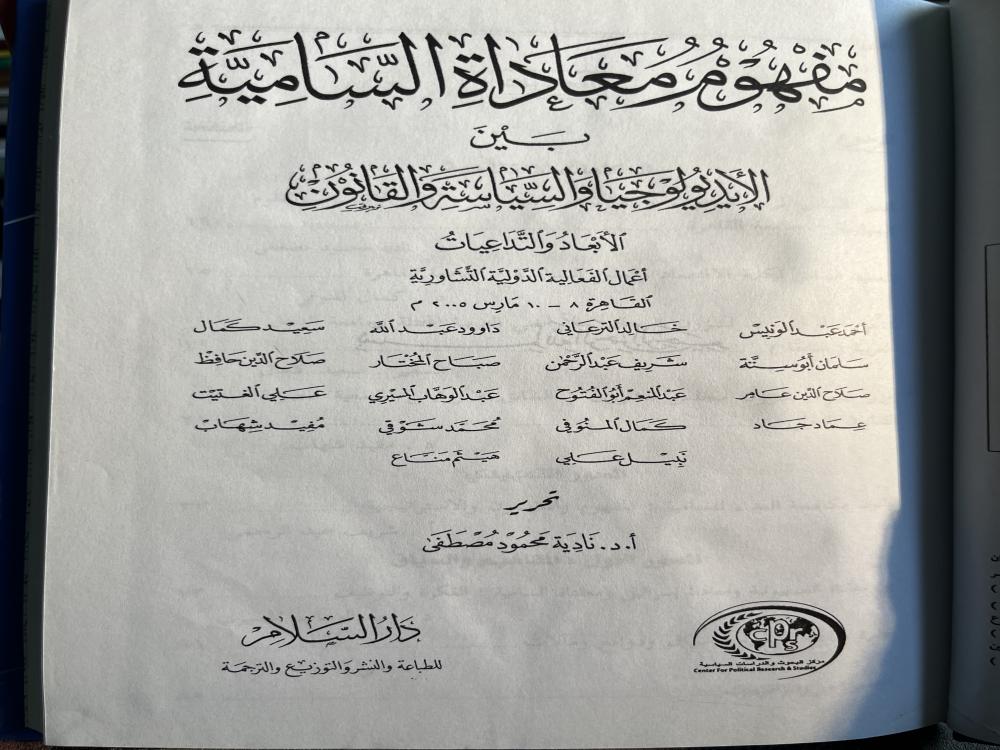 مَفْهُومُ مُعَادَاةِ السَّامِيَّةِ
بَيْنَ
الأيديولوجيا والسِّيَاسَةِ والقَانُونِ
الأَبْعَادُ وَالتَّدَاعِيَاتُ
أعمال الفعالية الدَّوليَّة التَّشاورِيَّة
القاهرة ٨ - ١٠ مَارِس ٢٠٠٥ م
أحمد عبد الونيس خالد الترعاني داوود عبد الله سعيد كمال
سلمان أبو ستة شريف عبد الرحمن صباح المختار صلاح الدين حافظ
صلاح الدين عامر عبد المنعم أبو الفتوح عبد الوهاب المسيري علي الغتيت
عماد جاد كمال المنوفي محمد شوقي مفيد شهاب
نبيل علي هيثم مناع
تحرير
أ.د. نَادِيَة مَحمُود مُصْطَفَى
دَارُ السَّلَامِ
للطباعة والنشر والتوزيع والترجمة
cprs
مركز البحوث والدراسات السياسية
Center For Political Research & Studies